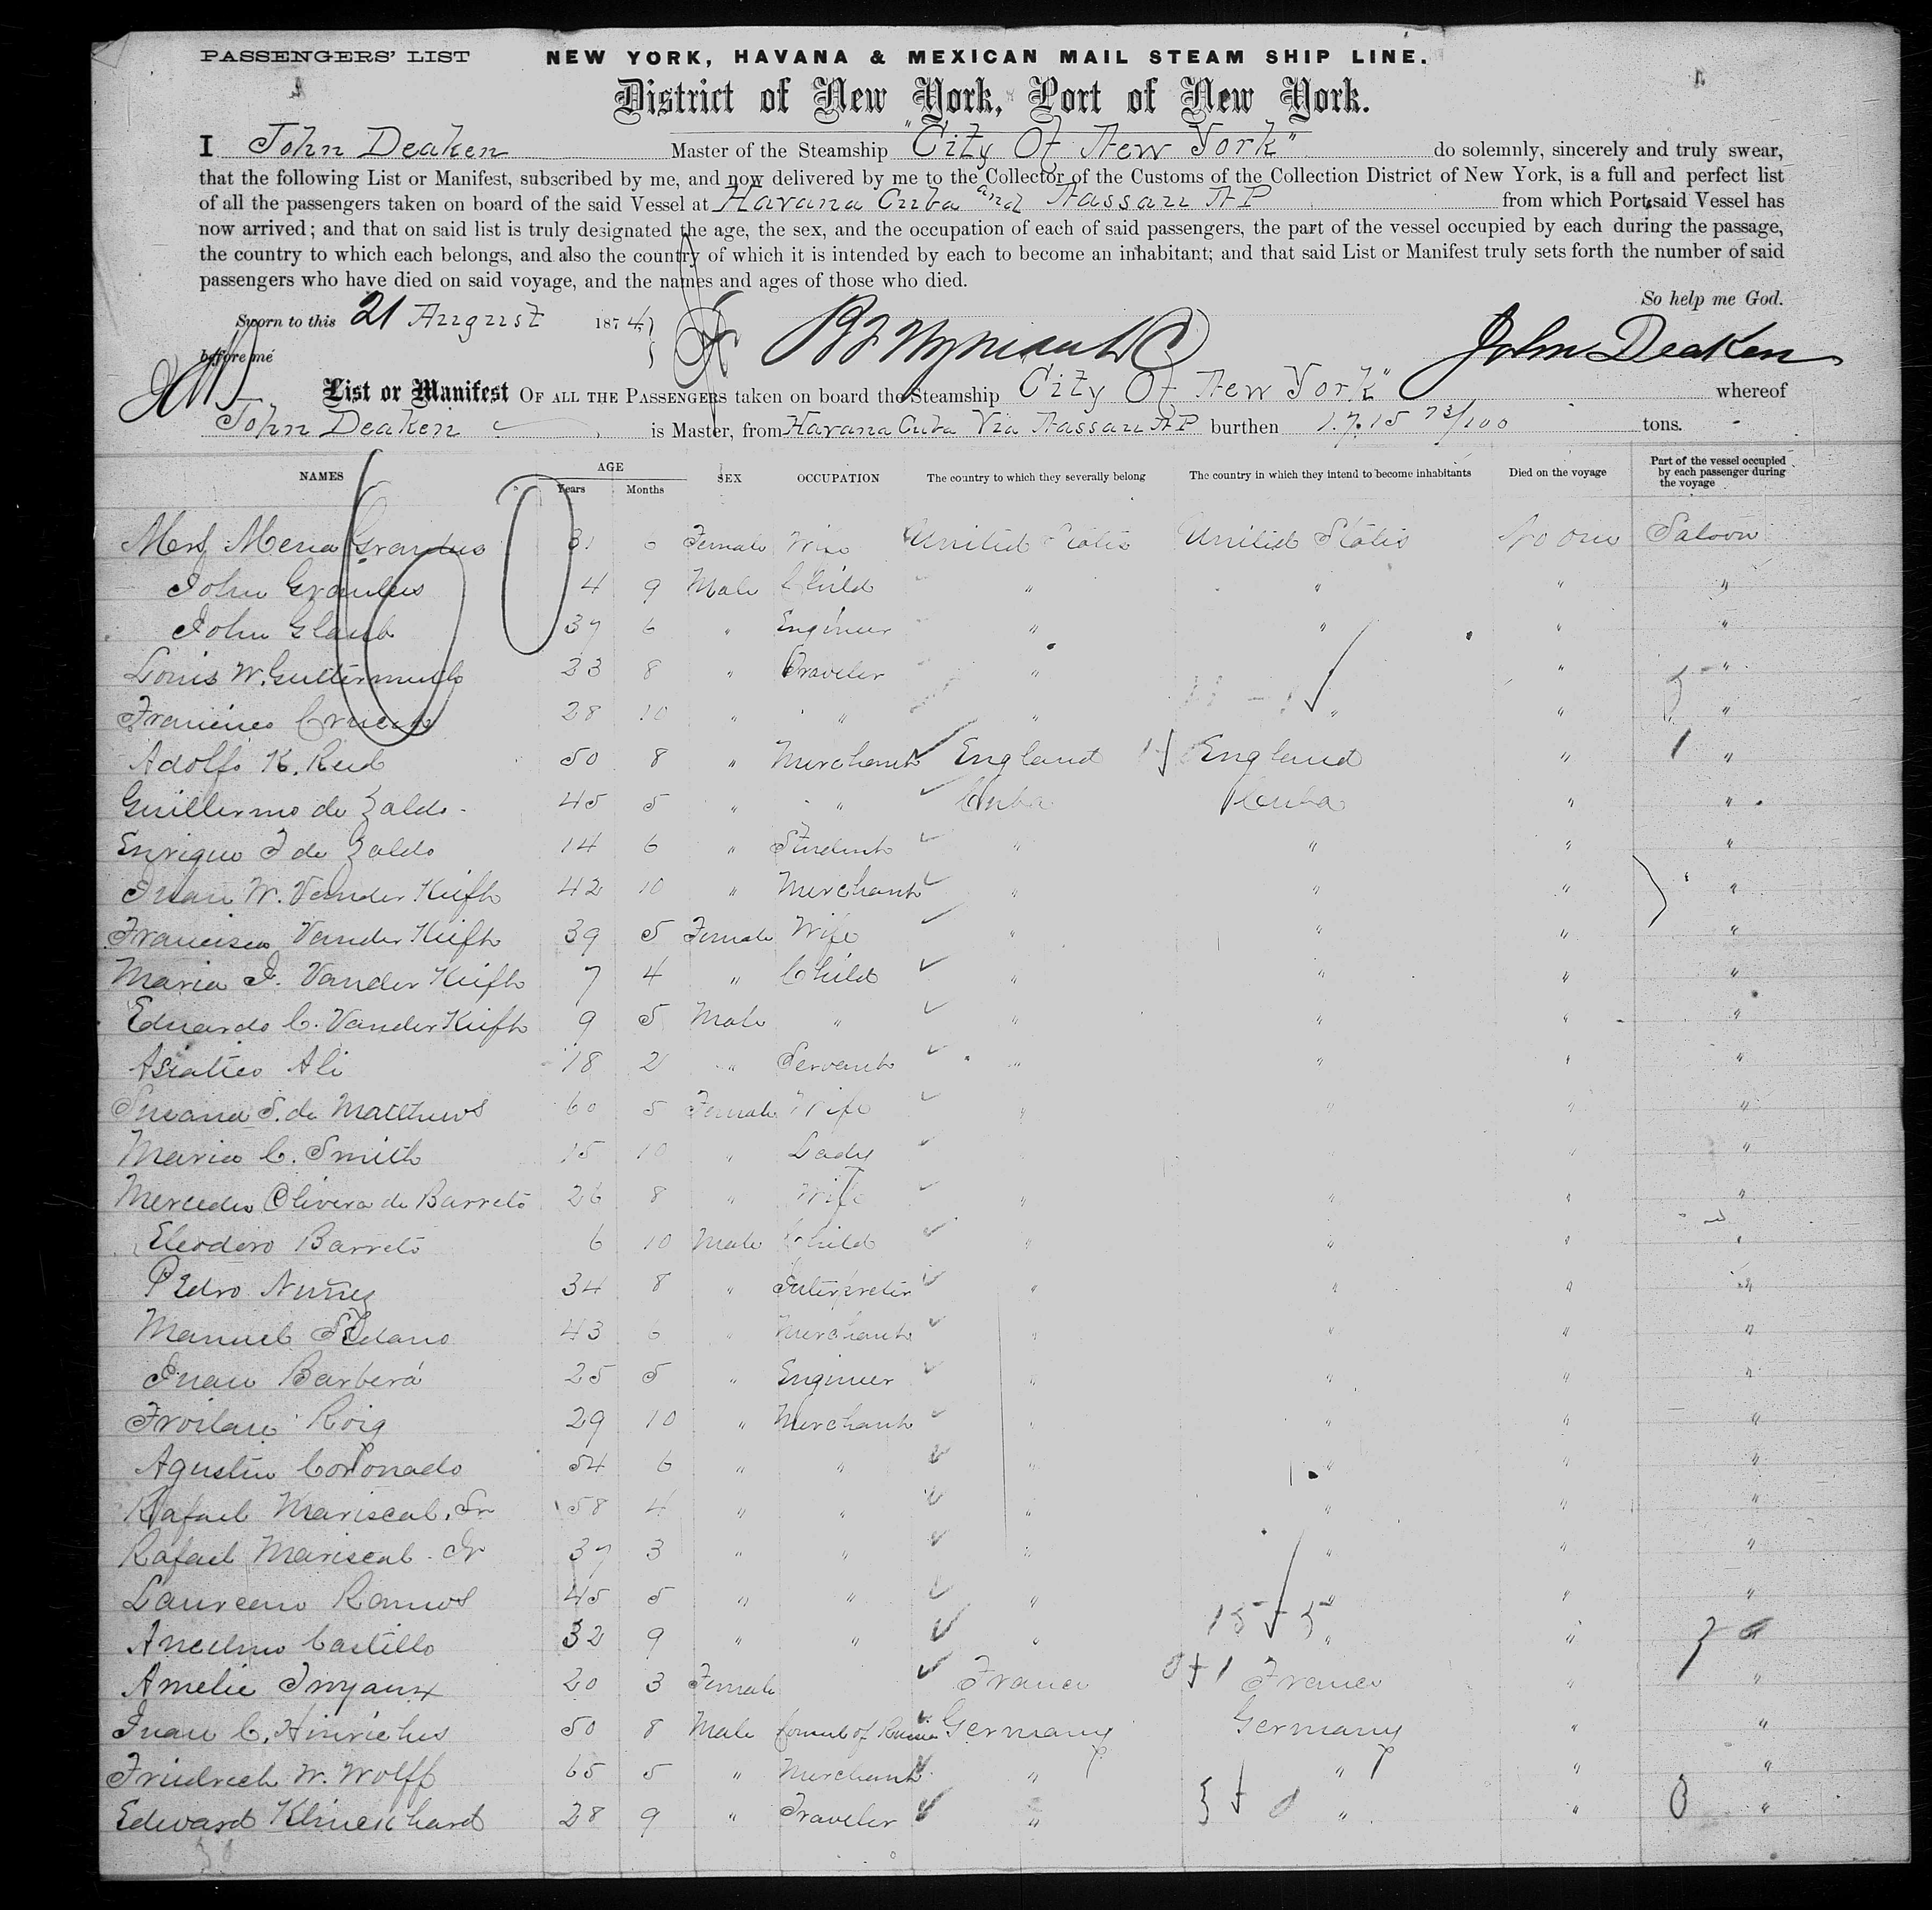 PASSENGERS' LIST NEW YORK, HAVANA & MEXICAN MAIL STEAM SHIP LINE.
District of New York, Port of New York.
I John Deaken Master of the Steamship "City Of New York" do solemnly, sincerely and truly swear,
that the following List or Manifest, subscribed by me, and now delivered by me to the Collector of the Customs of the Collection District of New York, is a full and perfect list
of all the passengers taken on board of the said Vessel at Havana Cuba and Nassau NP from which Port said Vessel has
now arrived; and that on said list is truly designated the age, the sex, and the occupation of each of said passengers, the part of the vessel occupied by each during the passage,
the country to which each belongs, and also the country of which it is intended by each to become an inhabitant; and that said List or Manifest truly sets forth the number of said
passengers who have died on said voyage, and the names and ages of those who died.
So help me God.
Sworn to this 21 August 1874
before me John Deaken
List or Manifest OF ALL THE PASSENGERS taken on board the Steamship City Of New York" whereof
John Deaken is Master, from Havana Cuba Via Nassau NP burthen 1.7.15 73/100 tons.
NAMES AGE Years Months SEX OCCUPATION The country to which they severally belong The country in which they intend to become inhabitants Died on the voyage Part of the vessel occupied by each passenger during the voyage
Mena Grandus 31 0 Female Wife United States United States No one Saloon
John Grandus 4 9 Male Child " " " "
John Glaub 37 6 " Engineer " " " "
Louis W. Guttermuth 23 8 " Traveler " " " "
28 10 " " " " " "
Adolfo K. Reid 50 8 " Merchant England England " "
Guillermo de Zaldo 45 5 " " Cuba Cuba " "
Enrique J de Zaldo 14 6 " Student " " " "
Juan W. Vander Kieft 42 10 " Merchant " " " "
Francisca Vander Kieft 39 5 Female Wife " " " "
Maria J. Vander Kieft 7 4 " Child " " " "
Eduardo C. Vander Kieft 9 5 Male " " " " "
Asiatico Ali 18 2 " Servant " " " "
Susana S. de Matthews 60 5 Female Wife " " " "
Maria C. Smith 15 10 " Lady " "
Mercedes Olivera de Barreto 26 8 " Wife " " " "
Eleodoro Barreto 6 10 Male Child " " " "
Pedro Nuñez 34 8 " Interpreter " " " "
Manuel Solano 43 6 " Merchant " " "
Juan Barberá 25 5 " Engineer " " " "
Froilan Roig 29 10 " Merchant " " " "
Agustin Coronado 54 6 " " " " " "
Rafael Mariscal, Sr 58 4 " " " " " "
Rafael Mariscal. Jr 37 3 " " " " " "
Laureano Ramos 45 5 " " " " " "
Anselmo Castillo 32 9 " " " " "
Amelie 20 3 Female France France " "
Juan C. Hinrichs 50 8 Male Consul of Russia Germany Germany " "
Friedrich W. Wolff 65 5 " Merchant " " " "
Edward Klinckhard 28 9 " Traveler " " " "